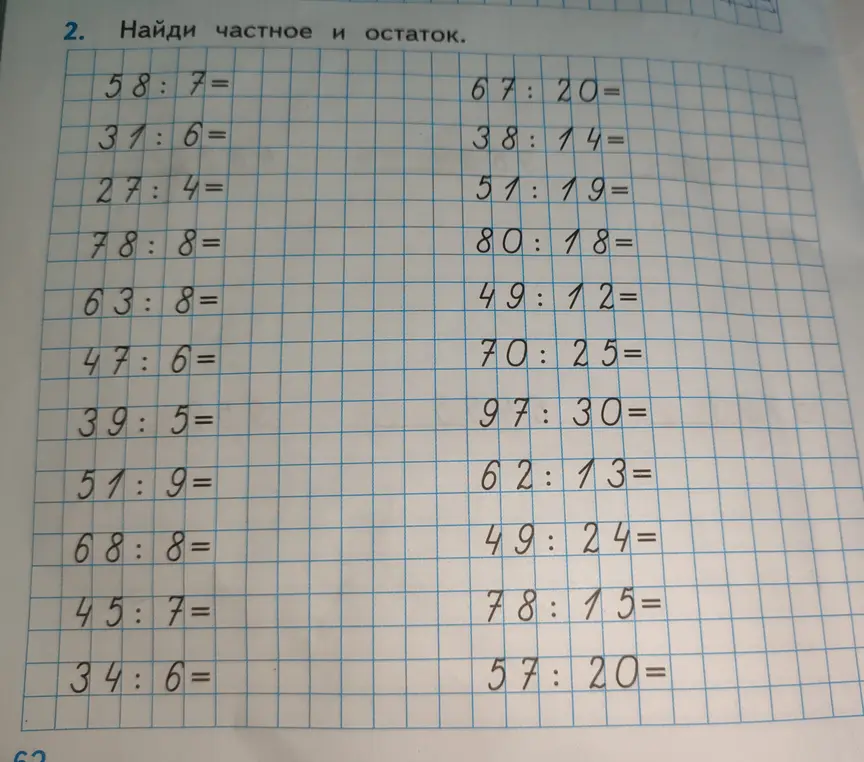 2. Найди частное и остаток.
58 : 7=
31 : 6=
27 : 4=
78 : 8=
63 : 8=
47 : 6=
39 : 5=
51 : 9=
68 : 8=
45 : 7=
34 : 6=
67 : 20=
38 : 14=
51 : 19=
80 : 18=
49 : 12=
70 : 25=
97 : 30=
62 : 13=
49 : 24=
78 : 15=
57 : 20=